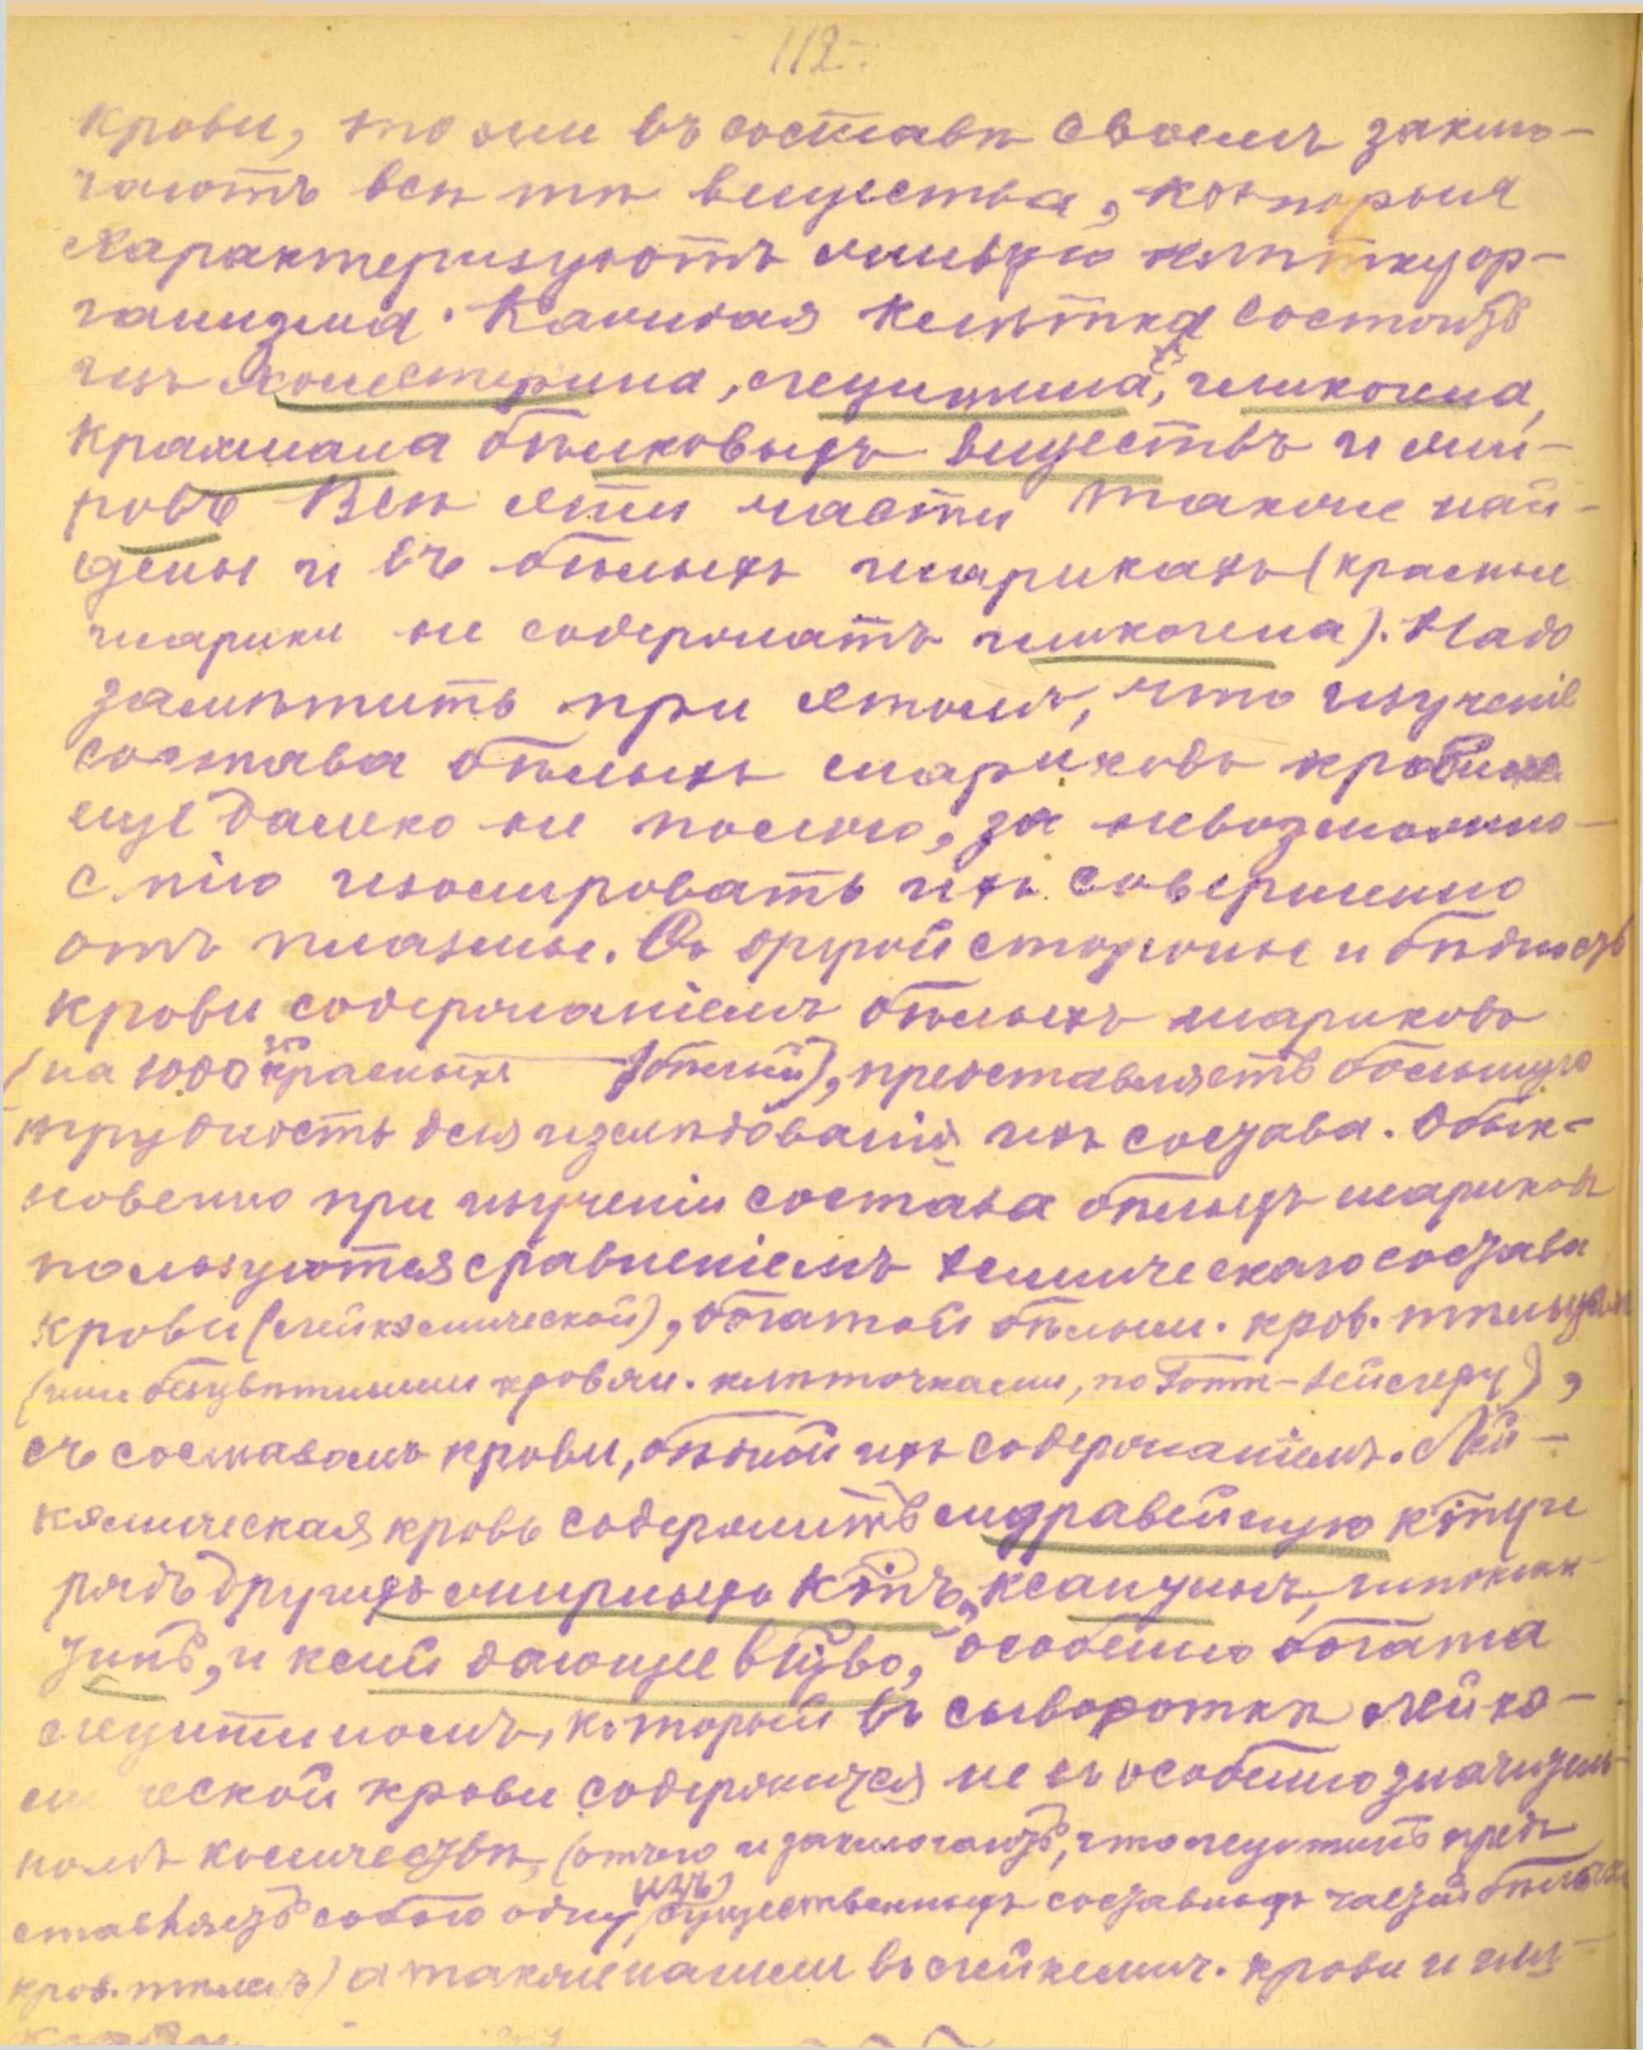 112.
крови, то они въ составѣ своемъ заклю-
чаютъ всѣ тѣ вещества, которыя
характеризуютъ живую клѣтку ор-
ганизма. Каждая клѣтка состоитъ
изъ холестерина, лецитина, гликогена,
крахмала бѣлковыхъ веществъ и жи-
ровъ Всѣ эти части также най-
дены и въ бѣлыхъ шарикахъ (красные
шарики не содержатъ гликогена). Надо
замѣтить при этомъ, что изученіе
состава бѣлыхъ шариковъ крови
еще далеко не полно, за невозможно-
стію изолировать ихъ совершенно
отъ плазмы. Съ другой стороны и бѣдность
крови содержаніемъ бѣлыхъ шариковъ
(на 1000 красныхъ — 1 бѣлый), представляетъ большую
трудность для изслѣдованія ихъ состава. Обык-
новенно при изученіи состава бѣлыхъ шариковъ
пользуются сравненіемъ химическаго состава
крови (лейкэмической), богатой бѣлыми. кров. тѣльцами
(или безцвѣтными кровян. клѣточками, по Гоппе-Зейлеру),
съ составомъ крови, бѣдной ихъ содержаніемъ. Лей-
кэмическая кровь содержитъ муравейную к͞ту и
рядъ другихъ жирныхъ к͞тъ, ксантинъ, гипоксан-
тинъ, и клей дающее в͞щво, особенно богата
лецитиномъ, который въ сывороткѣ лейкэ-
ми ческой крови содержится не въ особенно значитель-
номъ количествѣ, (отчего и заключаютъ, что лецитинъ пред-
ставляетъ собою одну изъ существенныхъ составныхъ частей бѣлыхъ
кров. тѣлецъ) а также нашли въ лейкемич. крови и гли-